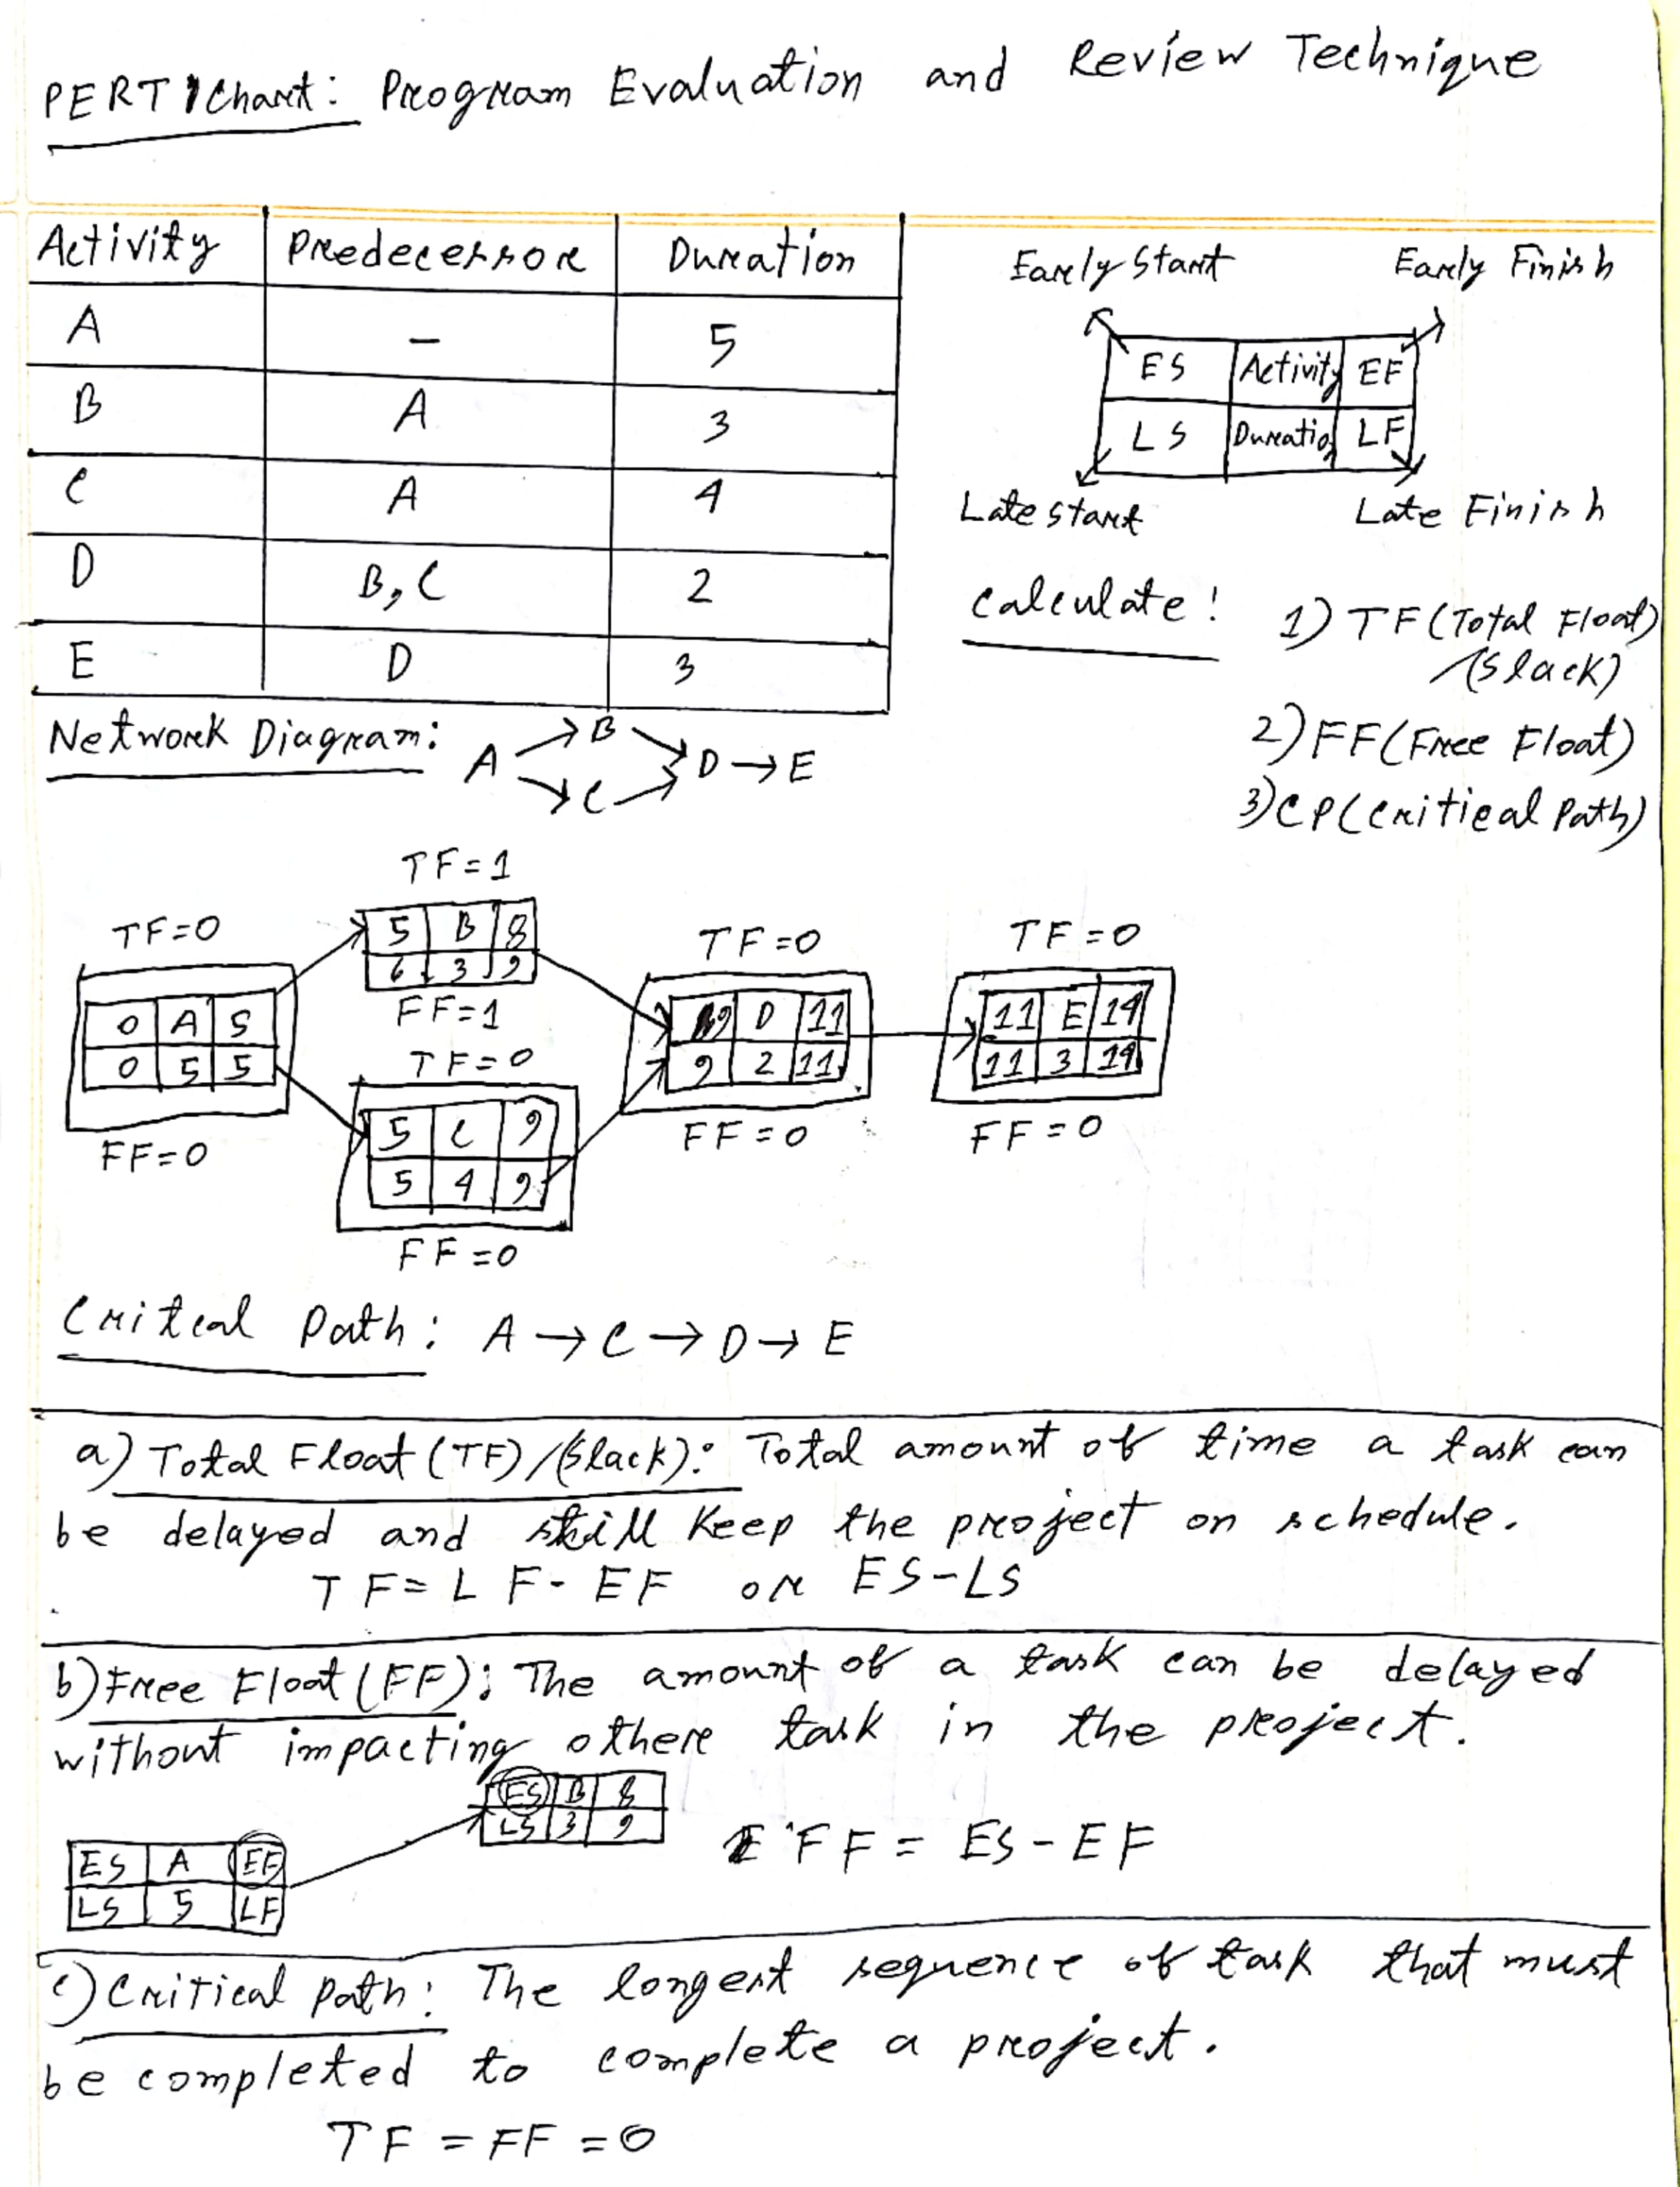 PERT Chart: Program Evaluation and Review Technique
Activity Predecessor Duration
A - 5
B A 3
C A 4
D B, C 2
E D 3
Early Start Early Finish
ES Activity EF
LS Duration LF
Late Start Late Finish
Calculate: 1) TF (Total Float)
(Slack)
2) FF (Free Float)
3) CP (Critical Path)
Network Diagram: A → B → D → E
→ C →
TF=1
5 B 8
6 3 9
FF=1
TF=0
0 A 5
0 5 5
FF=0
TF=0
5 C 9
5 4 9
FF=0
TF=0
9 D 11
9 2 11
FF=0
TF=0
11 E 14
11 3 14
FF=0
Critcal Path: A → C → D → E
a) Total Float (TF) / (Slack): Total amount of time a task can
be delayed and still keep the project on schedule.
TF = LF - EF or ES - LS
b) Free Float (FF): The amount of a task can be delayed
without impacting othere task in the project.
ES B 8
LS 3 9
ES A EF
LS 5 LF
FF = ES - EF
c) Critical Path: The longest sequence of task that must
be completed to complete a project.
TF = FF = 0